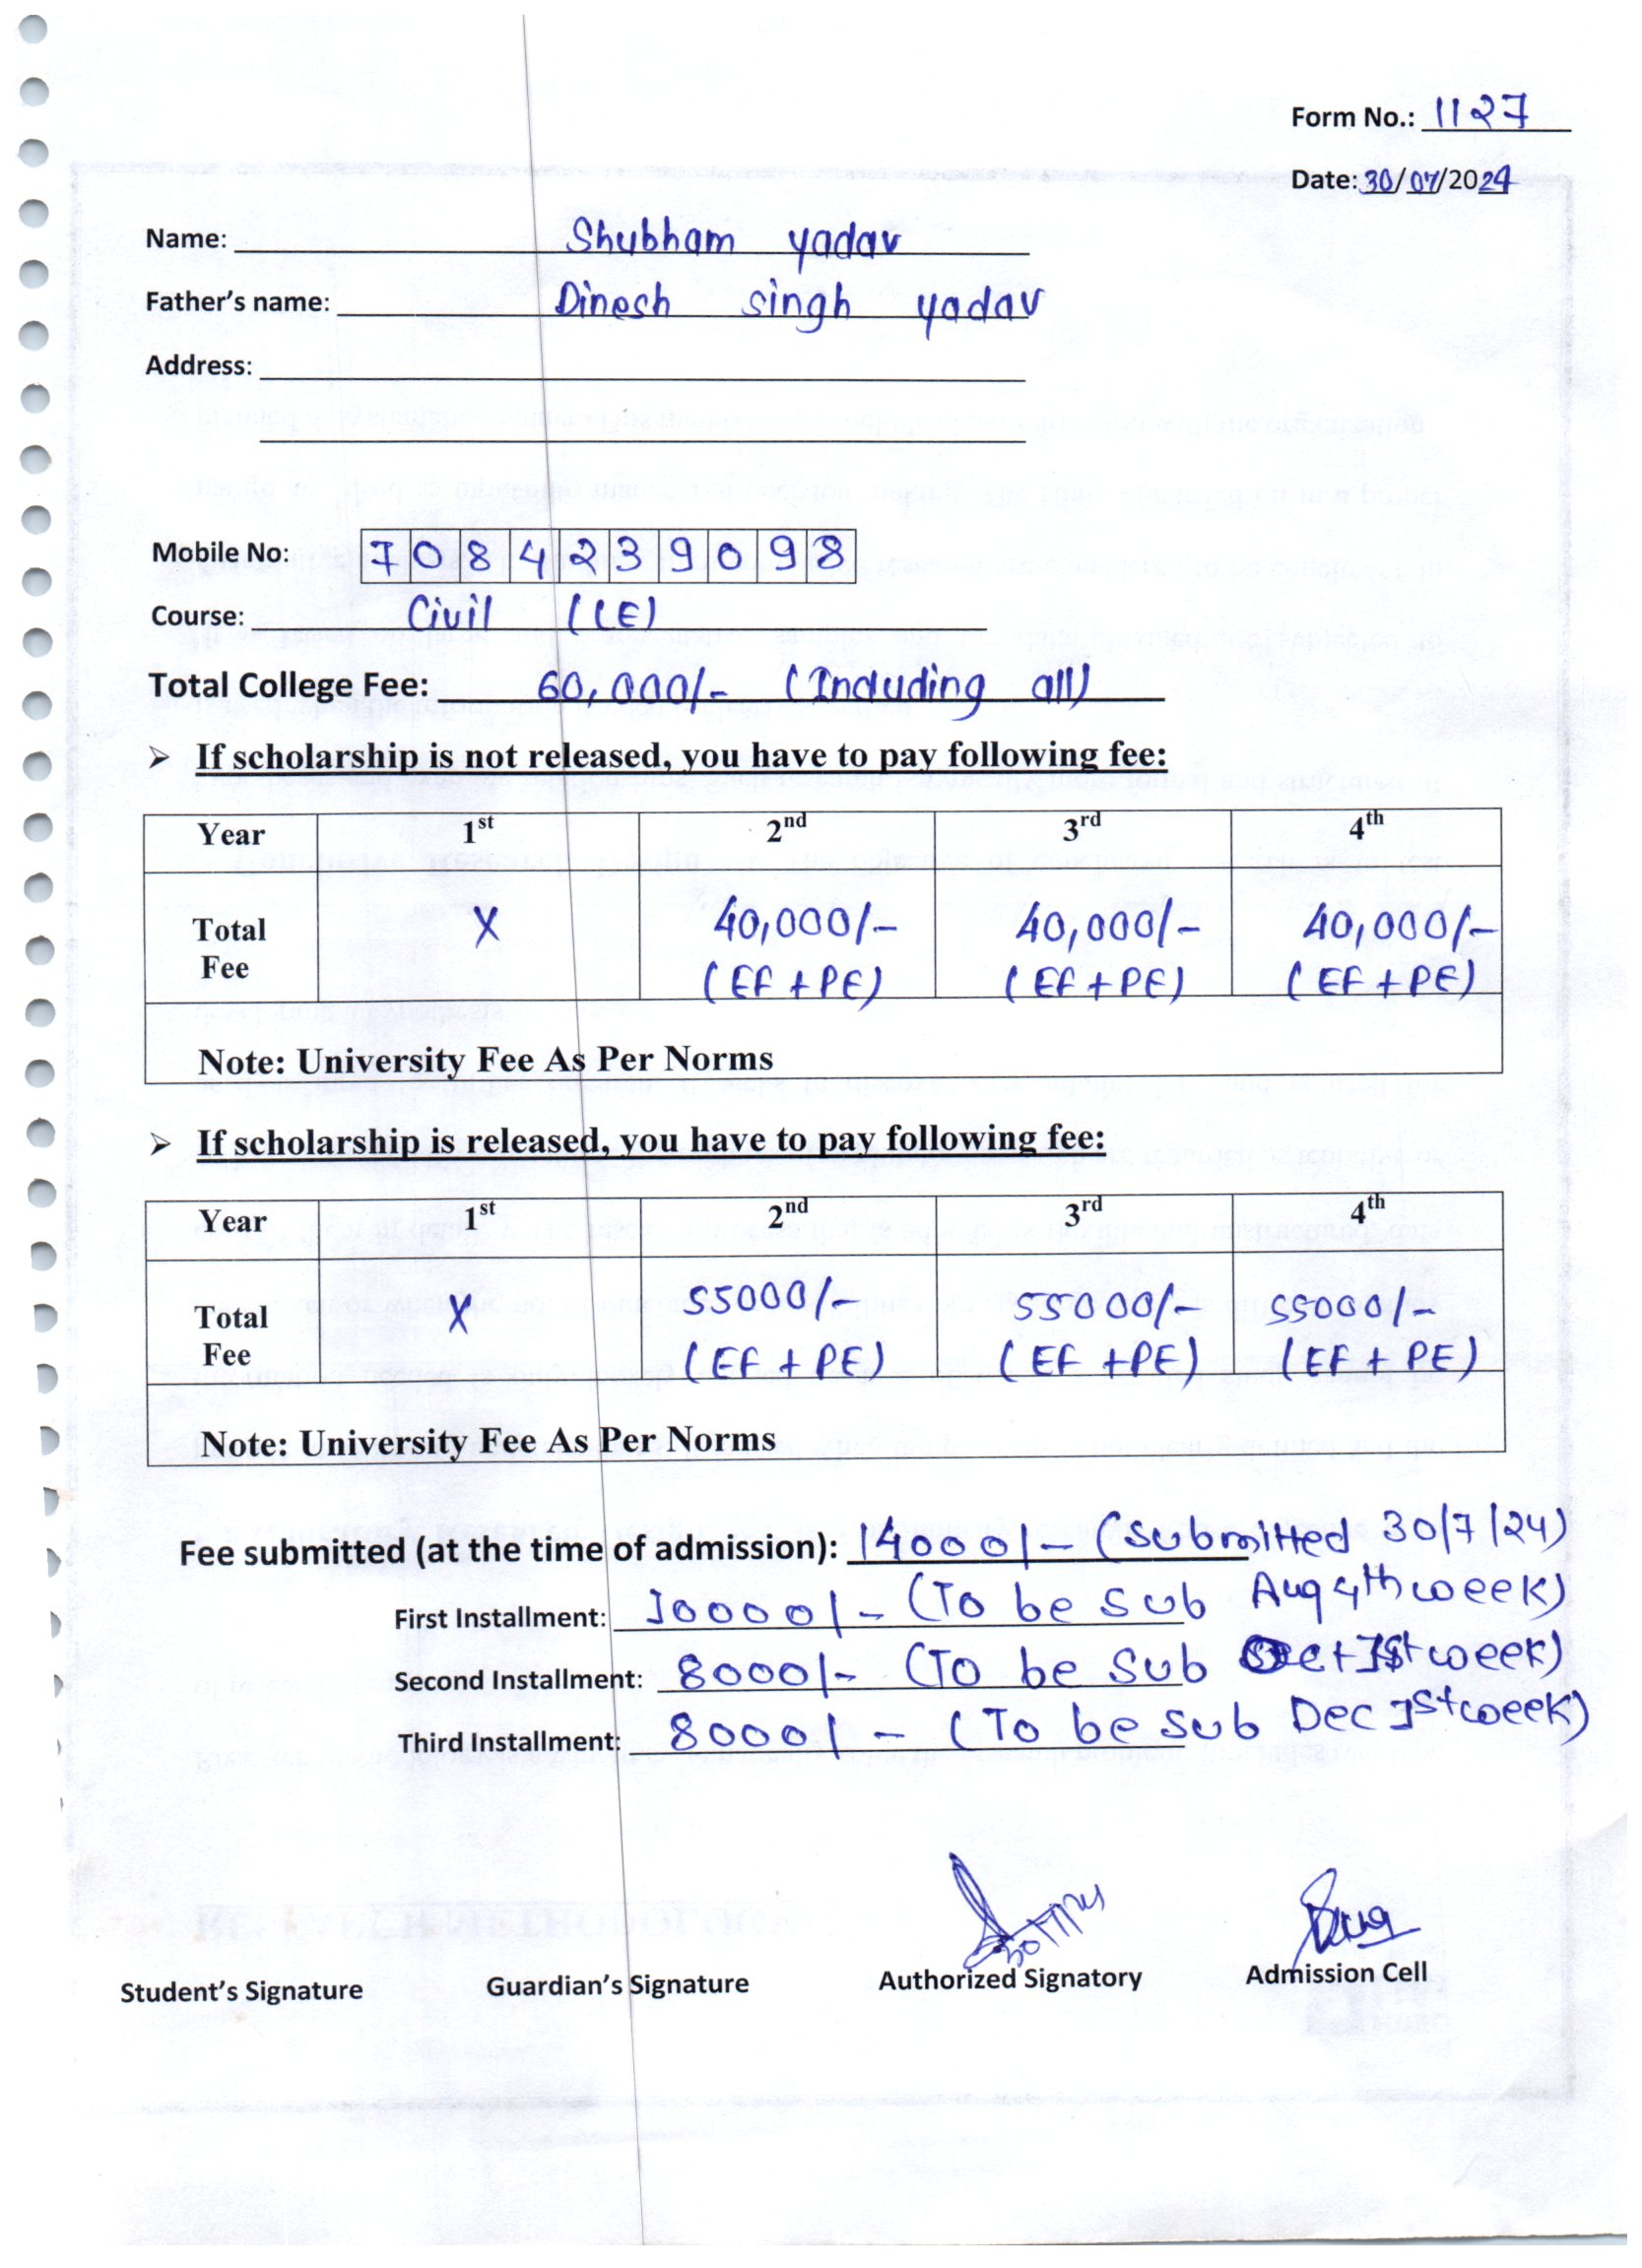 Form No.: 1127
Date: 30/07/2024
Name: Shubham yadav
Father's name: Dinesh singh yadav
Address:
Mobile No: 7084239098
Course: Civil (LE)
Total College Fee: 60,000/- (Including all)
➢ If scholarship is not released, you have to pay following fee:
Year 1st 2nd 3rd 4th
Total Fee X 40,000/- (EF + PE) 40,000/- (EF + PE) 40,000/- (EF + PE)
Note: University Fee As Per Norms
➢ If scholarship is released, you have to pay following fee:
Year 1st 2nd 3rd 4th
Total Fee X 55000/- (EF + PE) 55000/- (EF + PE) 55000/- (EF + PE)
Note: University Fee As Per Norms
Fee submitted (at the time of admission): 14000/- (Submitted 30/7/24)
First Installment: 10000/- (To be sub Aug 4th week)
Second Installment: 8000/- (To be sub Oct 1st week)
Third Installment: 8000/- (To be sub Dec 1st week)
Student's Signature Guardian's Signature Authorized Signatory Admission Cell